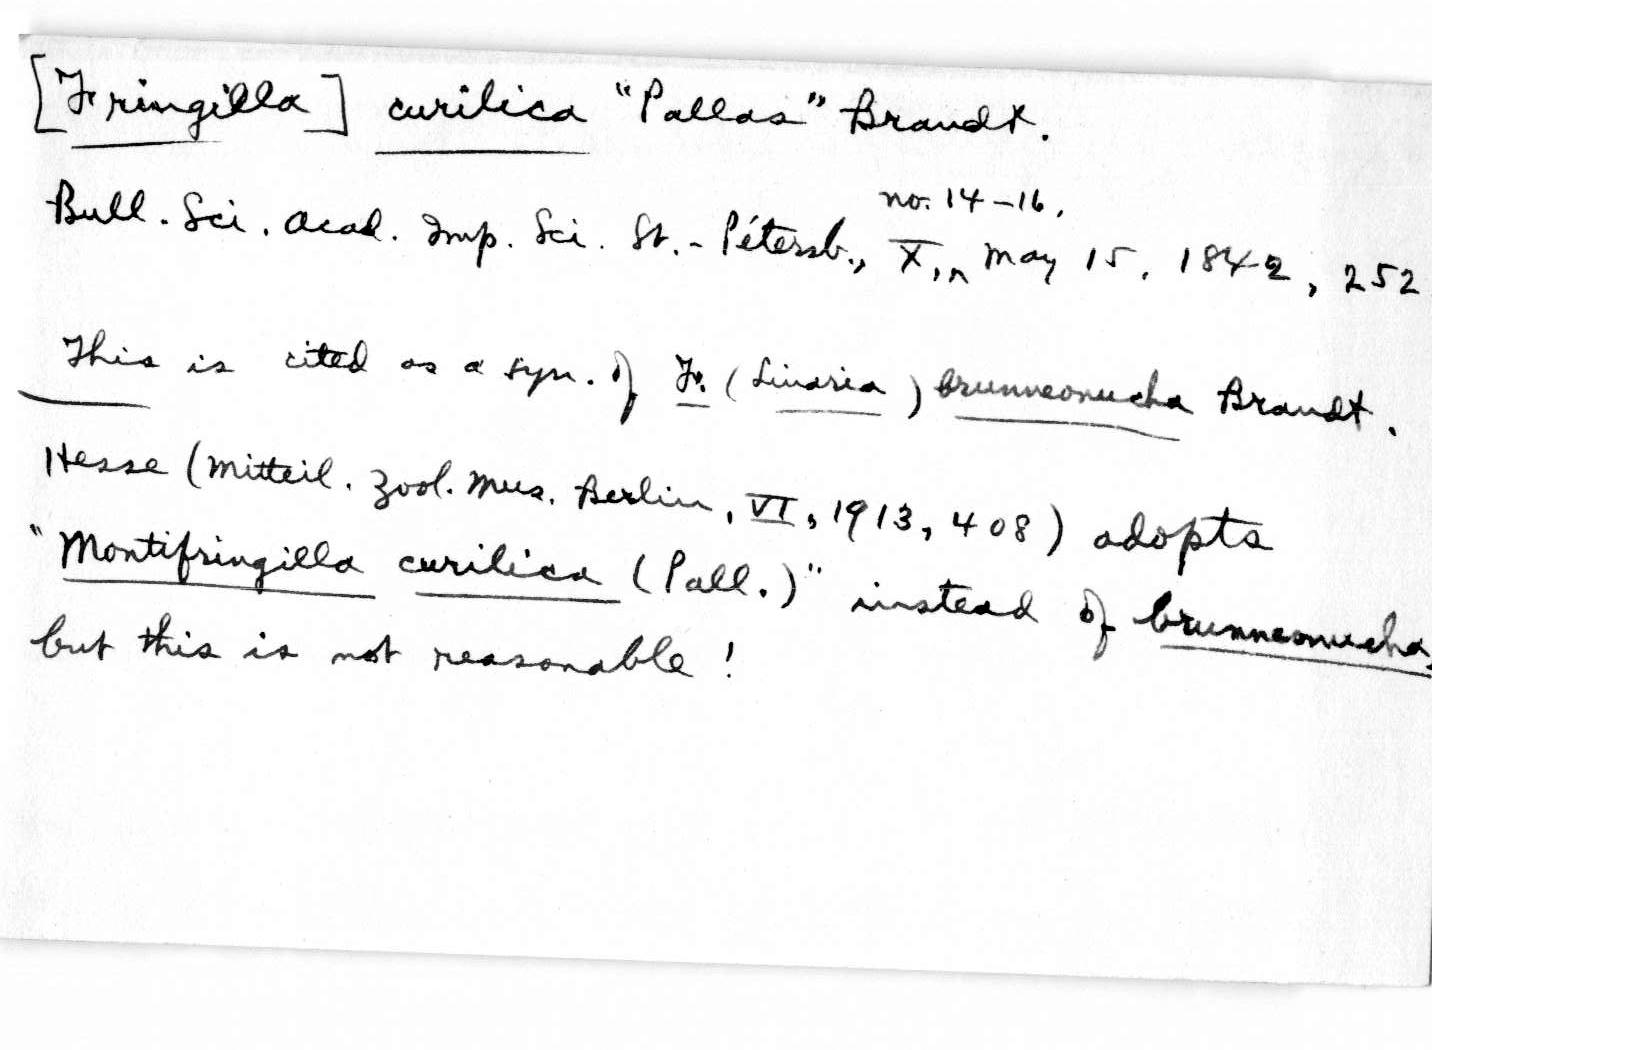 [Fringilla] curilica "Pallas" Brandt.
Bull. Sci. Acad. Imp. Sci. St.-Pétersb., X, no. 14-16, May 15, 1842, 252
This is cited as a syn. of F. (Linaria) brunneonucha Brandt.
Hesse (Mitteil. Zool. Mus. Berlin, VI, 1913, 408) adopts
"Montifringilla curilica (Pall.)" instead of brunneonucha,
but this is not reasonable!